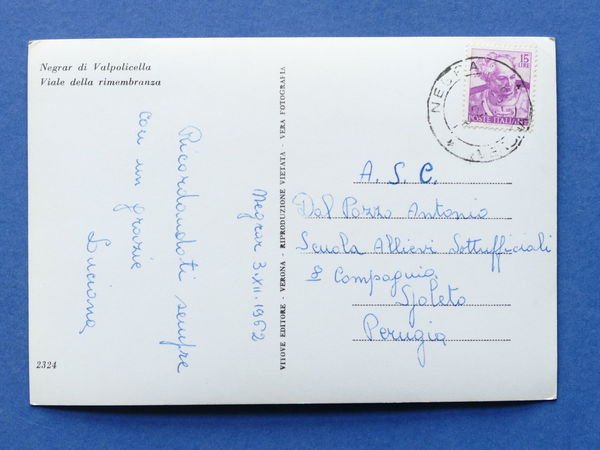 Negrar di Valpolicella
Viale della rimembranza
Negrar 3.XII.1962
Ricordandoti sempre
con un grazie
Luciana
2324
VITOVE EDITORE - VERONA - RIPRODUZIONE VIETATA - VERA FOTOGRAFIA
15
LIRE
POSTE ITALIANE
NEGRAR
VERONA
A. S. C.
Dal Pozzo Antonio
Scuola Allievi Sottufficiali
8 Compagnia
Spoleto
Perugia